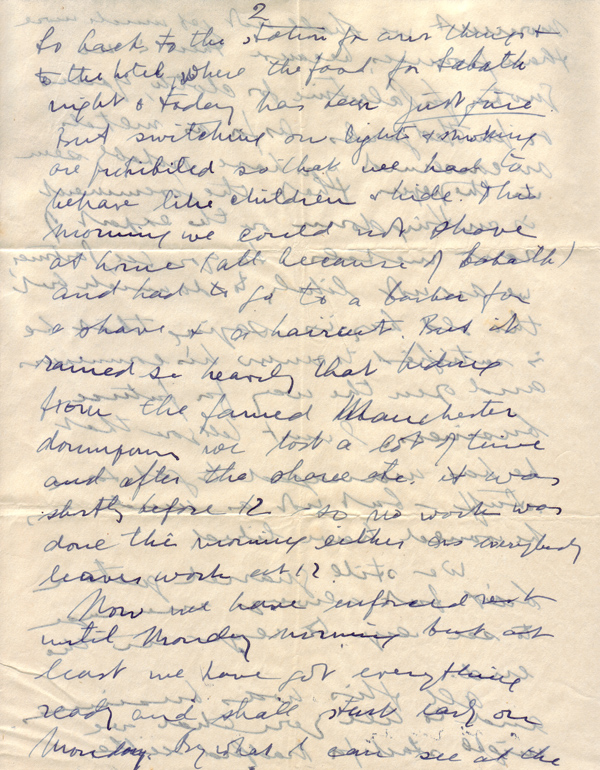 2
So back to the station for our things &
to the hotel, where the food for Sabath
night & today has been just fine.
But switching on lights & smoking
are prohibited so that we had to
behave like children & hide. This
morning we could not shave
at home (all because of Sabath)
and had to go to a barber for
a shave & a haircut. But it
rained so heavily that hiding
from the famed Manchester
downpour we lost a lot of time
and after the shave etc. it was
shortly before 12 so no work was
done this morning either as everybody
leaves work at 12.
Now we have enforced rest
until Monday morning but at
least we have got everything
ready and shall start early on
Monday. By what I can see at the